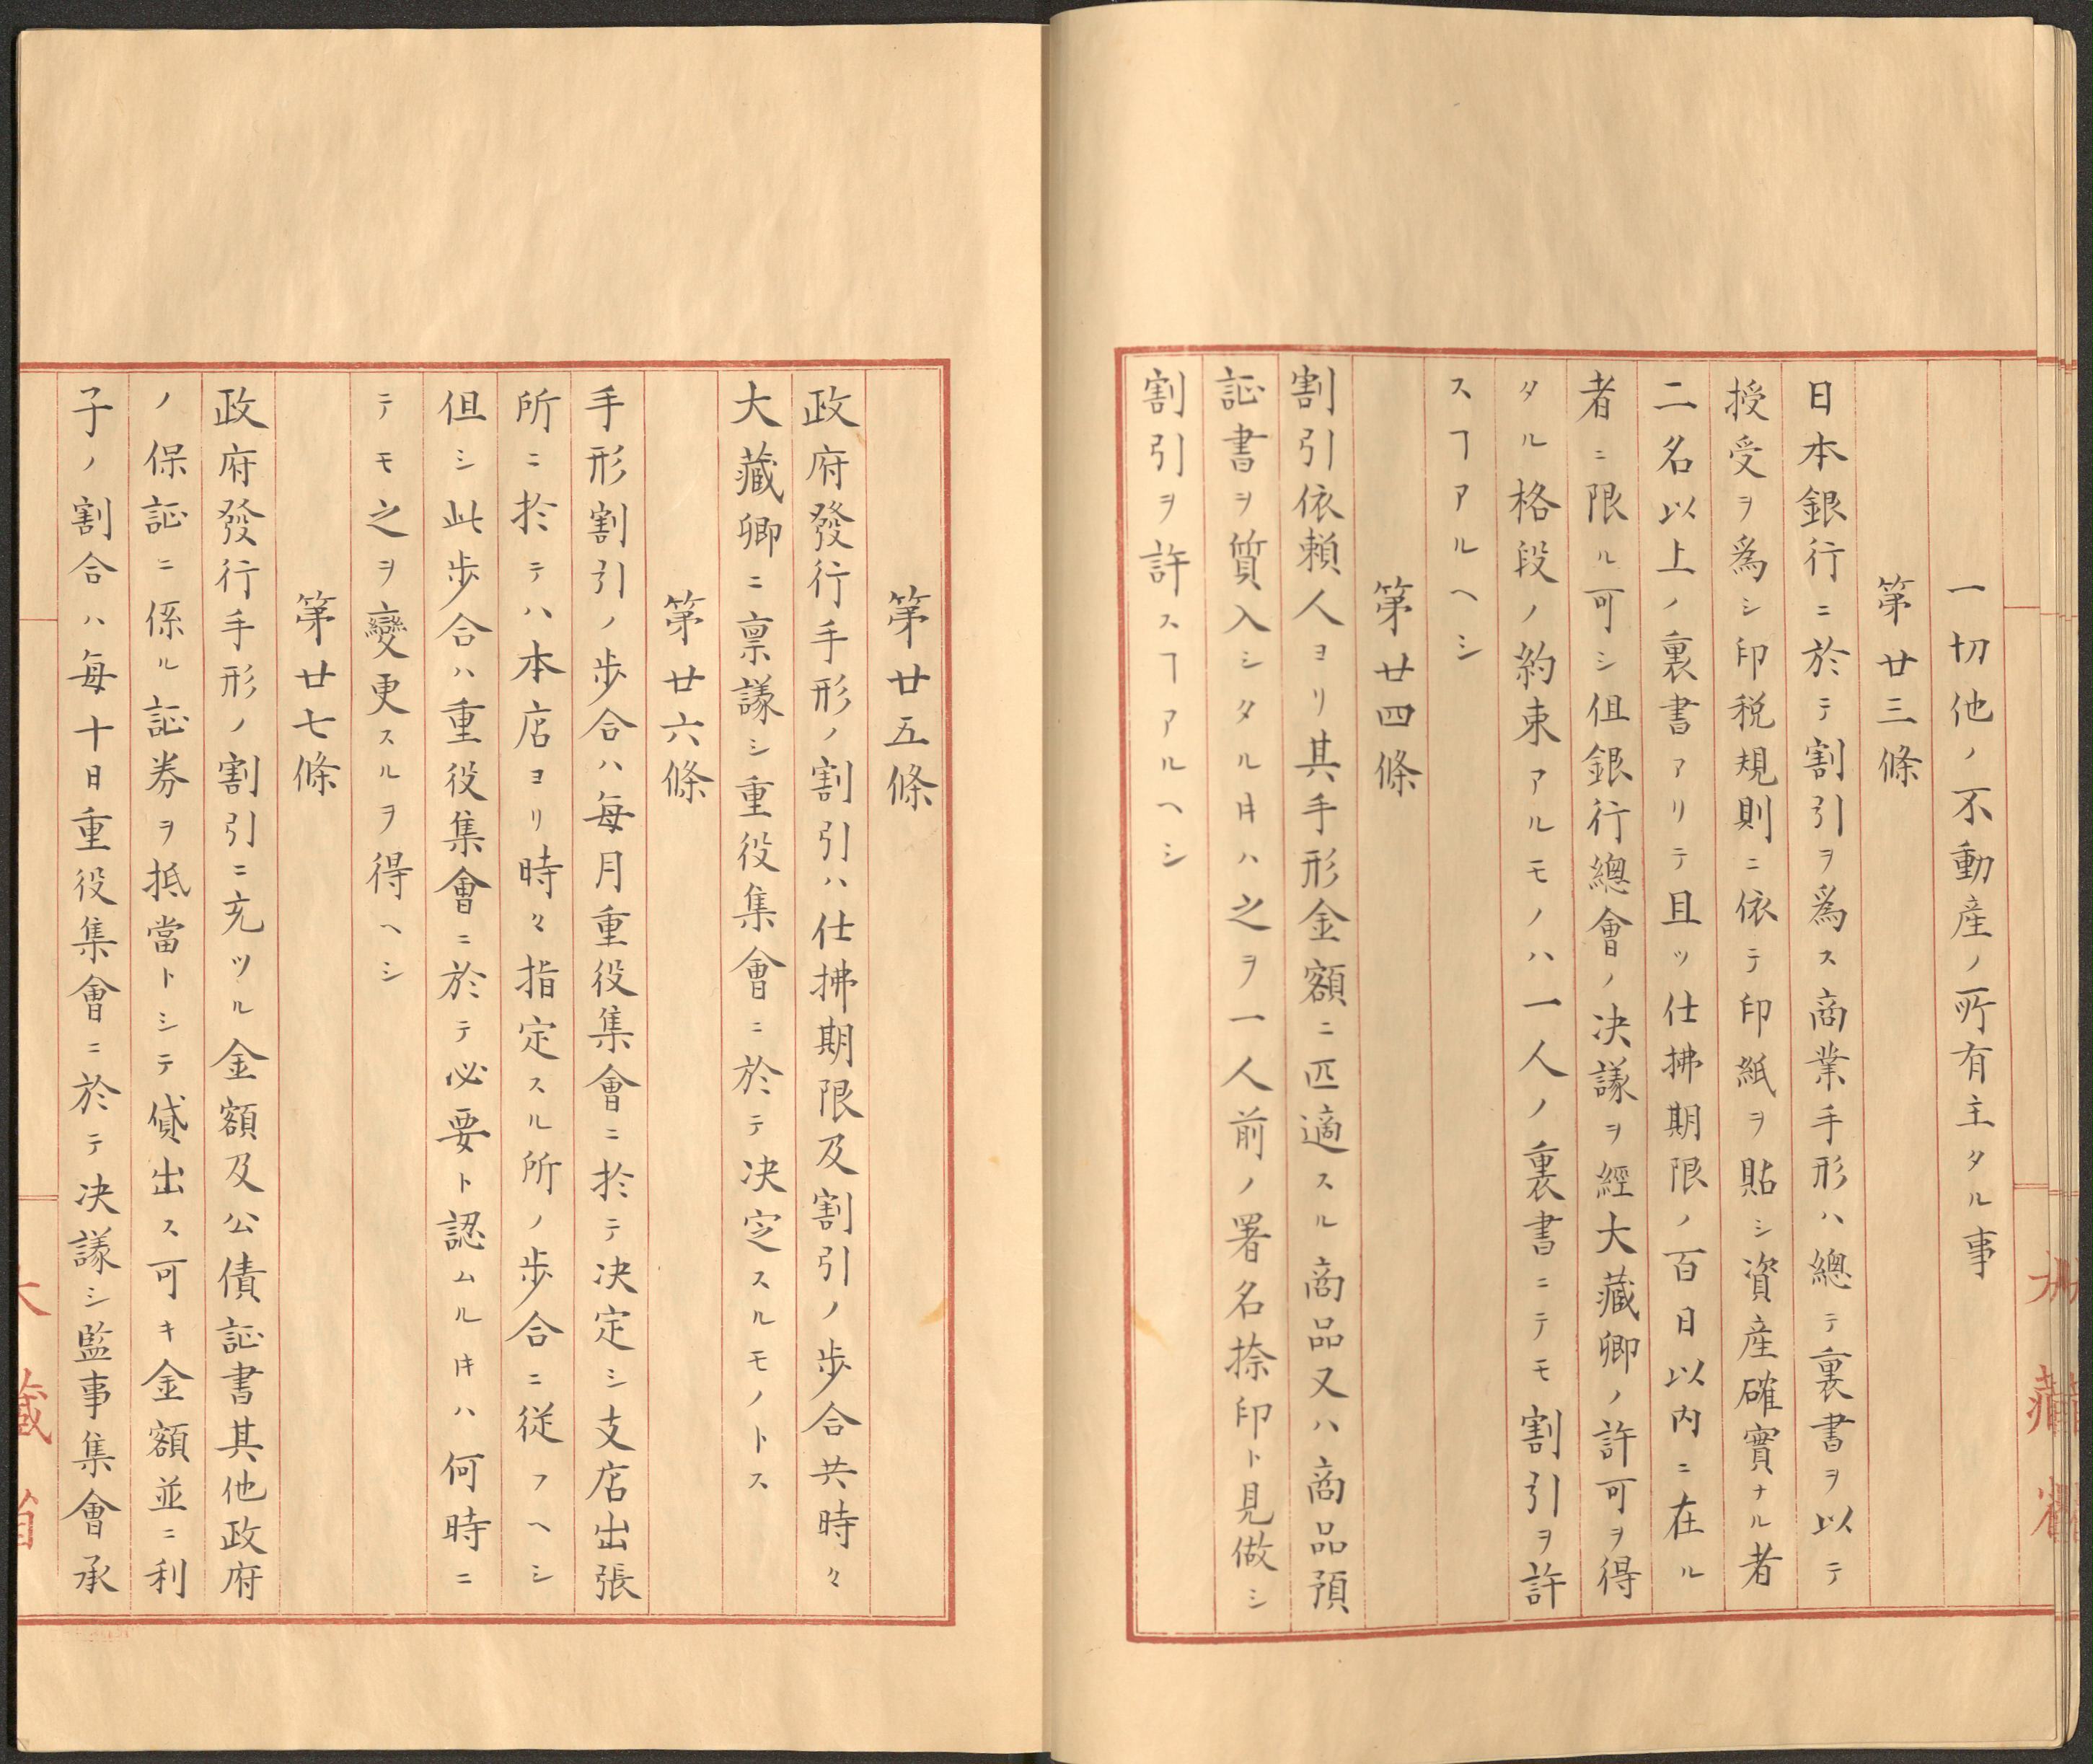 一切他ノ不動産ノ所有主タル事
第廿三條
日本銀行ニ於テ割引ヲ爲ス商業手形ハ總テ裏書ヲ以テ
授受ヲ爲シ印税規則ニ依テ印紙ヲ貼シ資産確實ナル者
二名以上ノ裏書アリテ且ツ仕拂期限ノ百日以内ニ在ル
者ニ限ル可シ但銀行總會ノ决議ヲ經大藏卿ノ許可ヲ得
タル格段ノ約束アルモノハ一人ノ裏書ニテモ割引ヲ許
スヿアルヘシ
第廿四條
割引依頼人ヨリ其手形金額ニ匹適スル商品又ハ商品預
証書ヲ質入シタル𪜈ハ之ヲ一人前ノ署名捺印ト見做シ
割引ヲ許スヿアルヘシ
第廿五條
政府發行手形ノ割引ハ仕拂期限及割引ノ歩合共時々
大藏卿ニ禀議シ重役集會ニ於テ决定スルモノトス
第廿六條
手形割引ノ歩合ハ毎月重役集會ニ於テ决定シ支店出張
所ニ於テハ本店ヨリ時々指定スル所ノ歩合ニ從フヘシ
但シ此歩合ハ重役集會ニ於テ必要ト認ムル𪜈ハ何時ニ
テモ之ヲ變更スルヲ得ヘシ
第廿七條
政府發行手形ノ割引ニ充ツル金額及公債証書其他政府
ノ保証ニ係ル証券ヲ抵當トシテ貸出ス可キ金額並ニ利
子ノ割合ハ毎十日重役集會ニ於テ决議シ監事集會承
大藏省